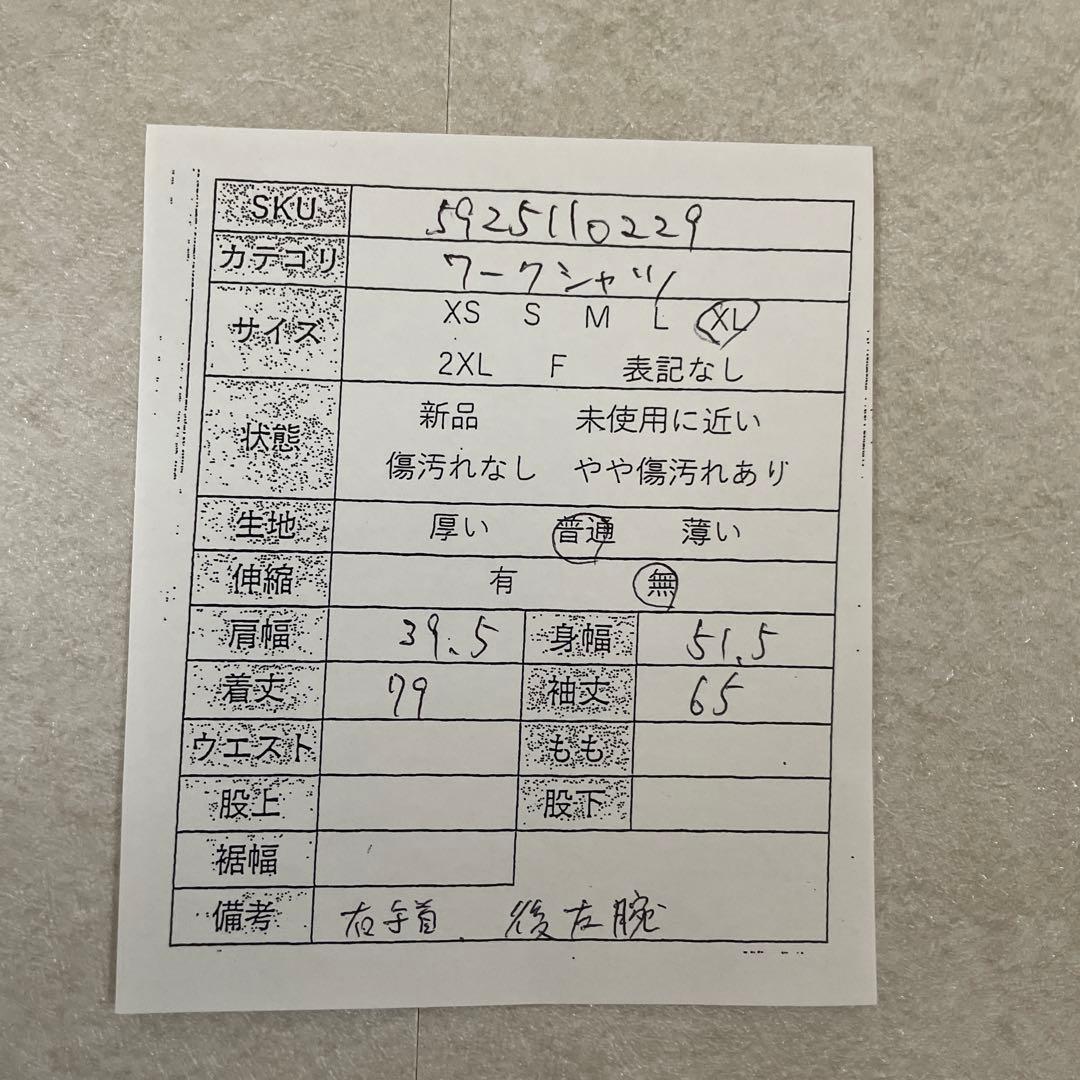 SKU 5925110229
カテゴリ ワークシャツ
サイズ XS S M L XL
2XL F 表記なし
状態 新品 未使用に近い
傷汚れなし やや傷汚れあり
生地 厚い 普通 薄い
伸縮 有 無
肩幅 39.5 身幅 51.5
着丈 79 袖丈 65
ウエスト もも
股上 股下
裾幅
備考 右手首、後左腕